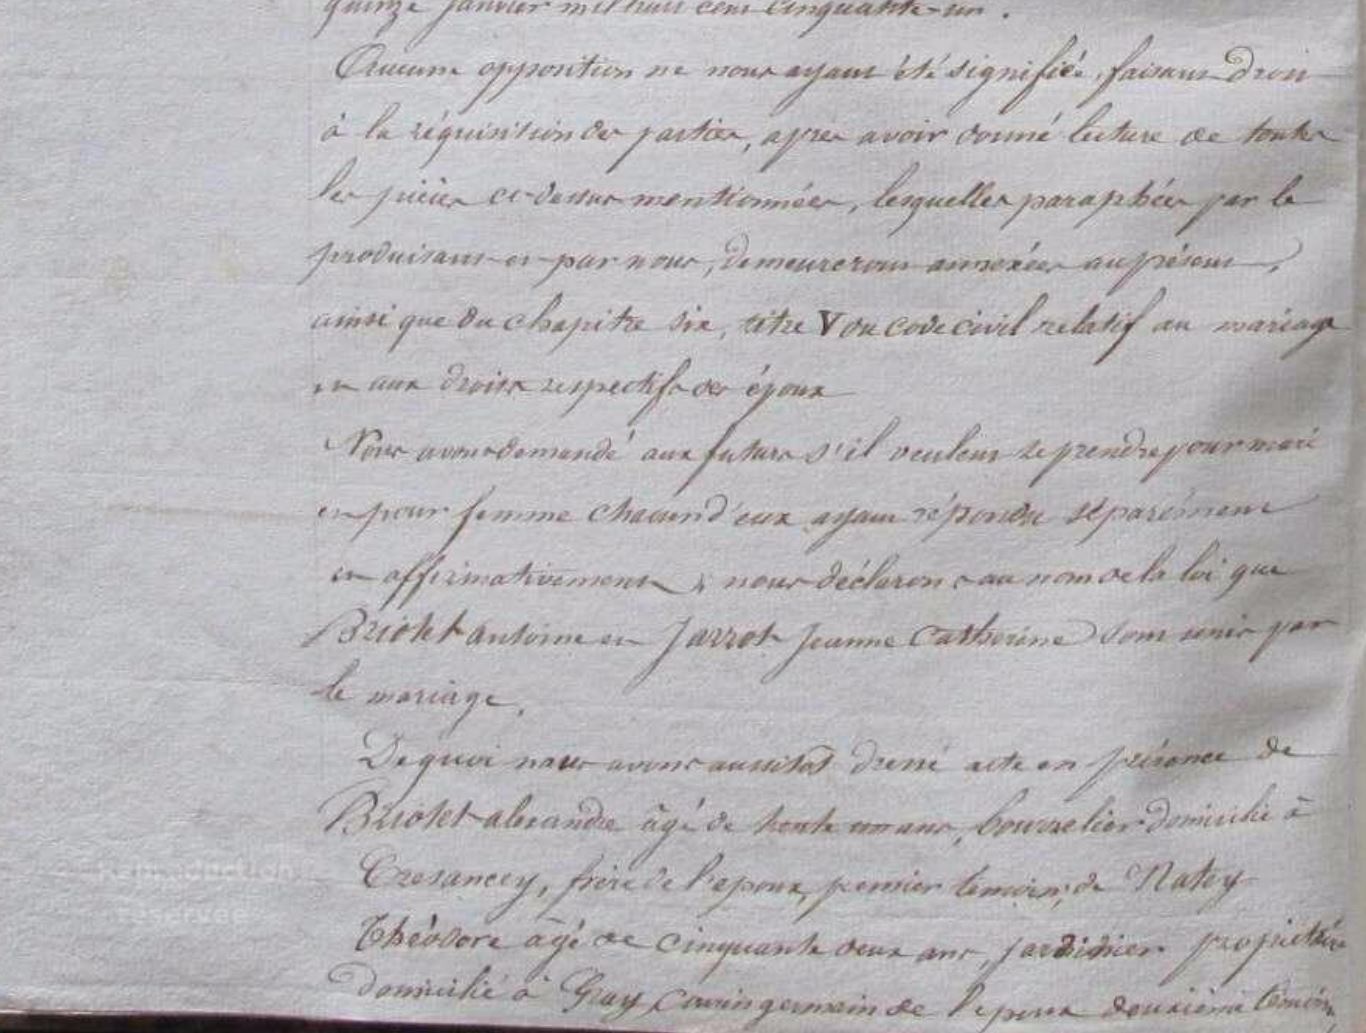 quinze Janvier mil huit cent cinquante-un.
Aucune opposition ne nous ayant été signifiée, faisant Droit
à la réquisition des parties, après avoir donné lecture de toutes
les pièces ci-dessus mentionnées, lesquelles paraphées par le
produisant et par nous, demeureront annexées au présent,
ainsi que du chapitre six, titre V du code civil relatif au mariage
et aux droits respectifs des époux
Nous avons demandé aux futurs s'il veulent se prendre pour mari
et pour femme chacun d'eux ayant répondu séparément
et affirmativement ; nous déclarons au nom de la loi que
Briotet antoine et Jarrot Jeanne Catherine sont unis par
le mariage.
De quoi nous avons aussitot dressé acte en présence de
Briotet alexandre âgé de trente un ans, bourrelier domicilié à
Cresancey, frère de l'epoux, premier temoin; de Natey
Théodore âgé de cinquante deux ans, jardinier propriétaire
domicilié à Gray, cousin germain de l'epoux deuxième témoin,
Reproduction
réservée